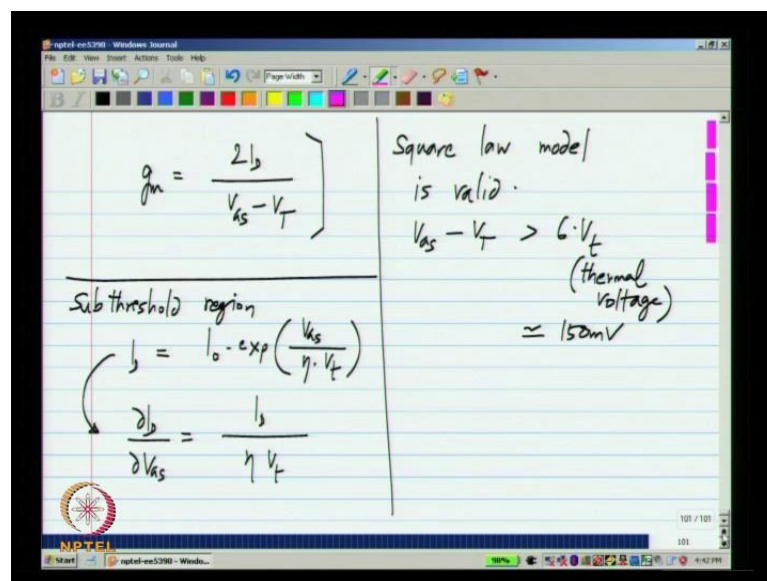 nptel-ee5390 - Windows Journal
File Edit View Insert Actions Tools Help
Page Width
B I
gm = 2I_D / (V_GS − V_T)
Sub threshold region
I_D = I_0 · exp(V_GS / (η · V_t))
∂I_D / ∂V_GS = I_D / (η V_t)
Square law model
is valid.
V_GS − V_T > 6 · V_t
(thermal
voltage)
≃ 150mV
101 / 101
101
NPTEL
Start
nptel-ee5390 - Windo...
98%
4:42 PM